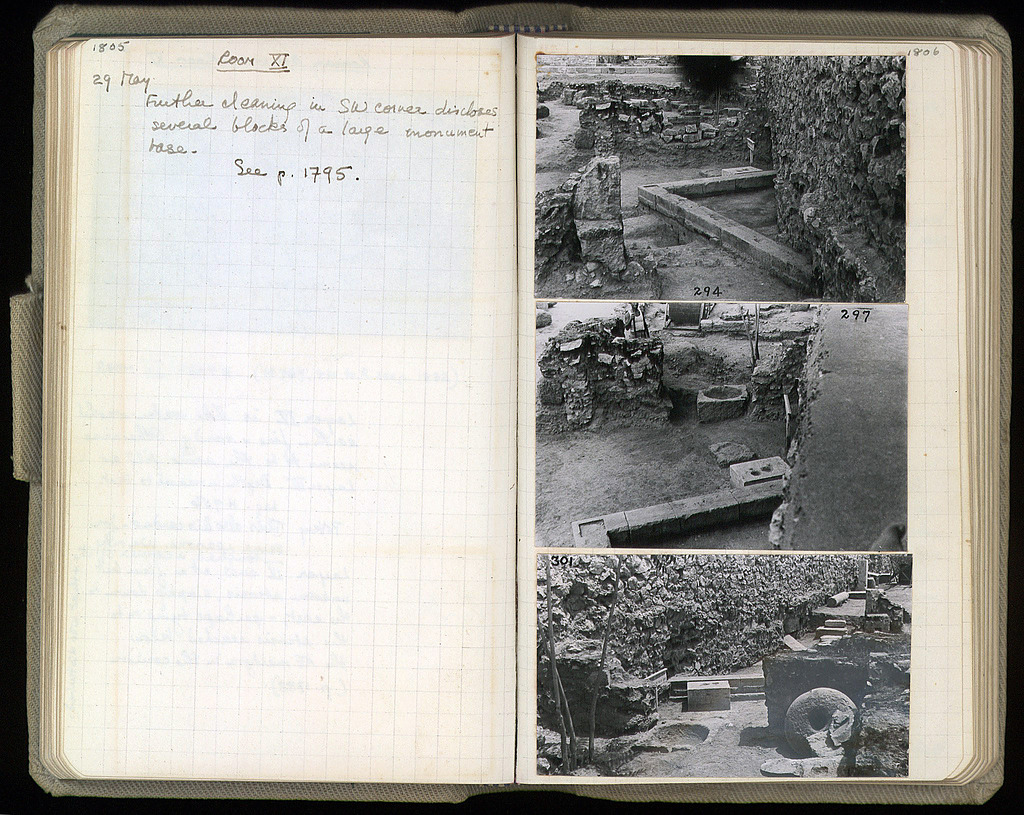 1805
Room XI
29 May
Further cleaning in SW corner discloses
several blocks of a large monument
base.
See p. 1795.
1806
294
297
301